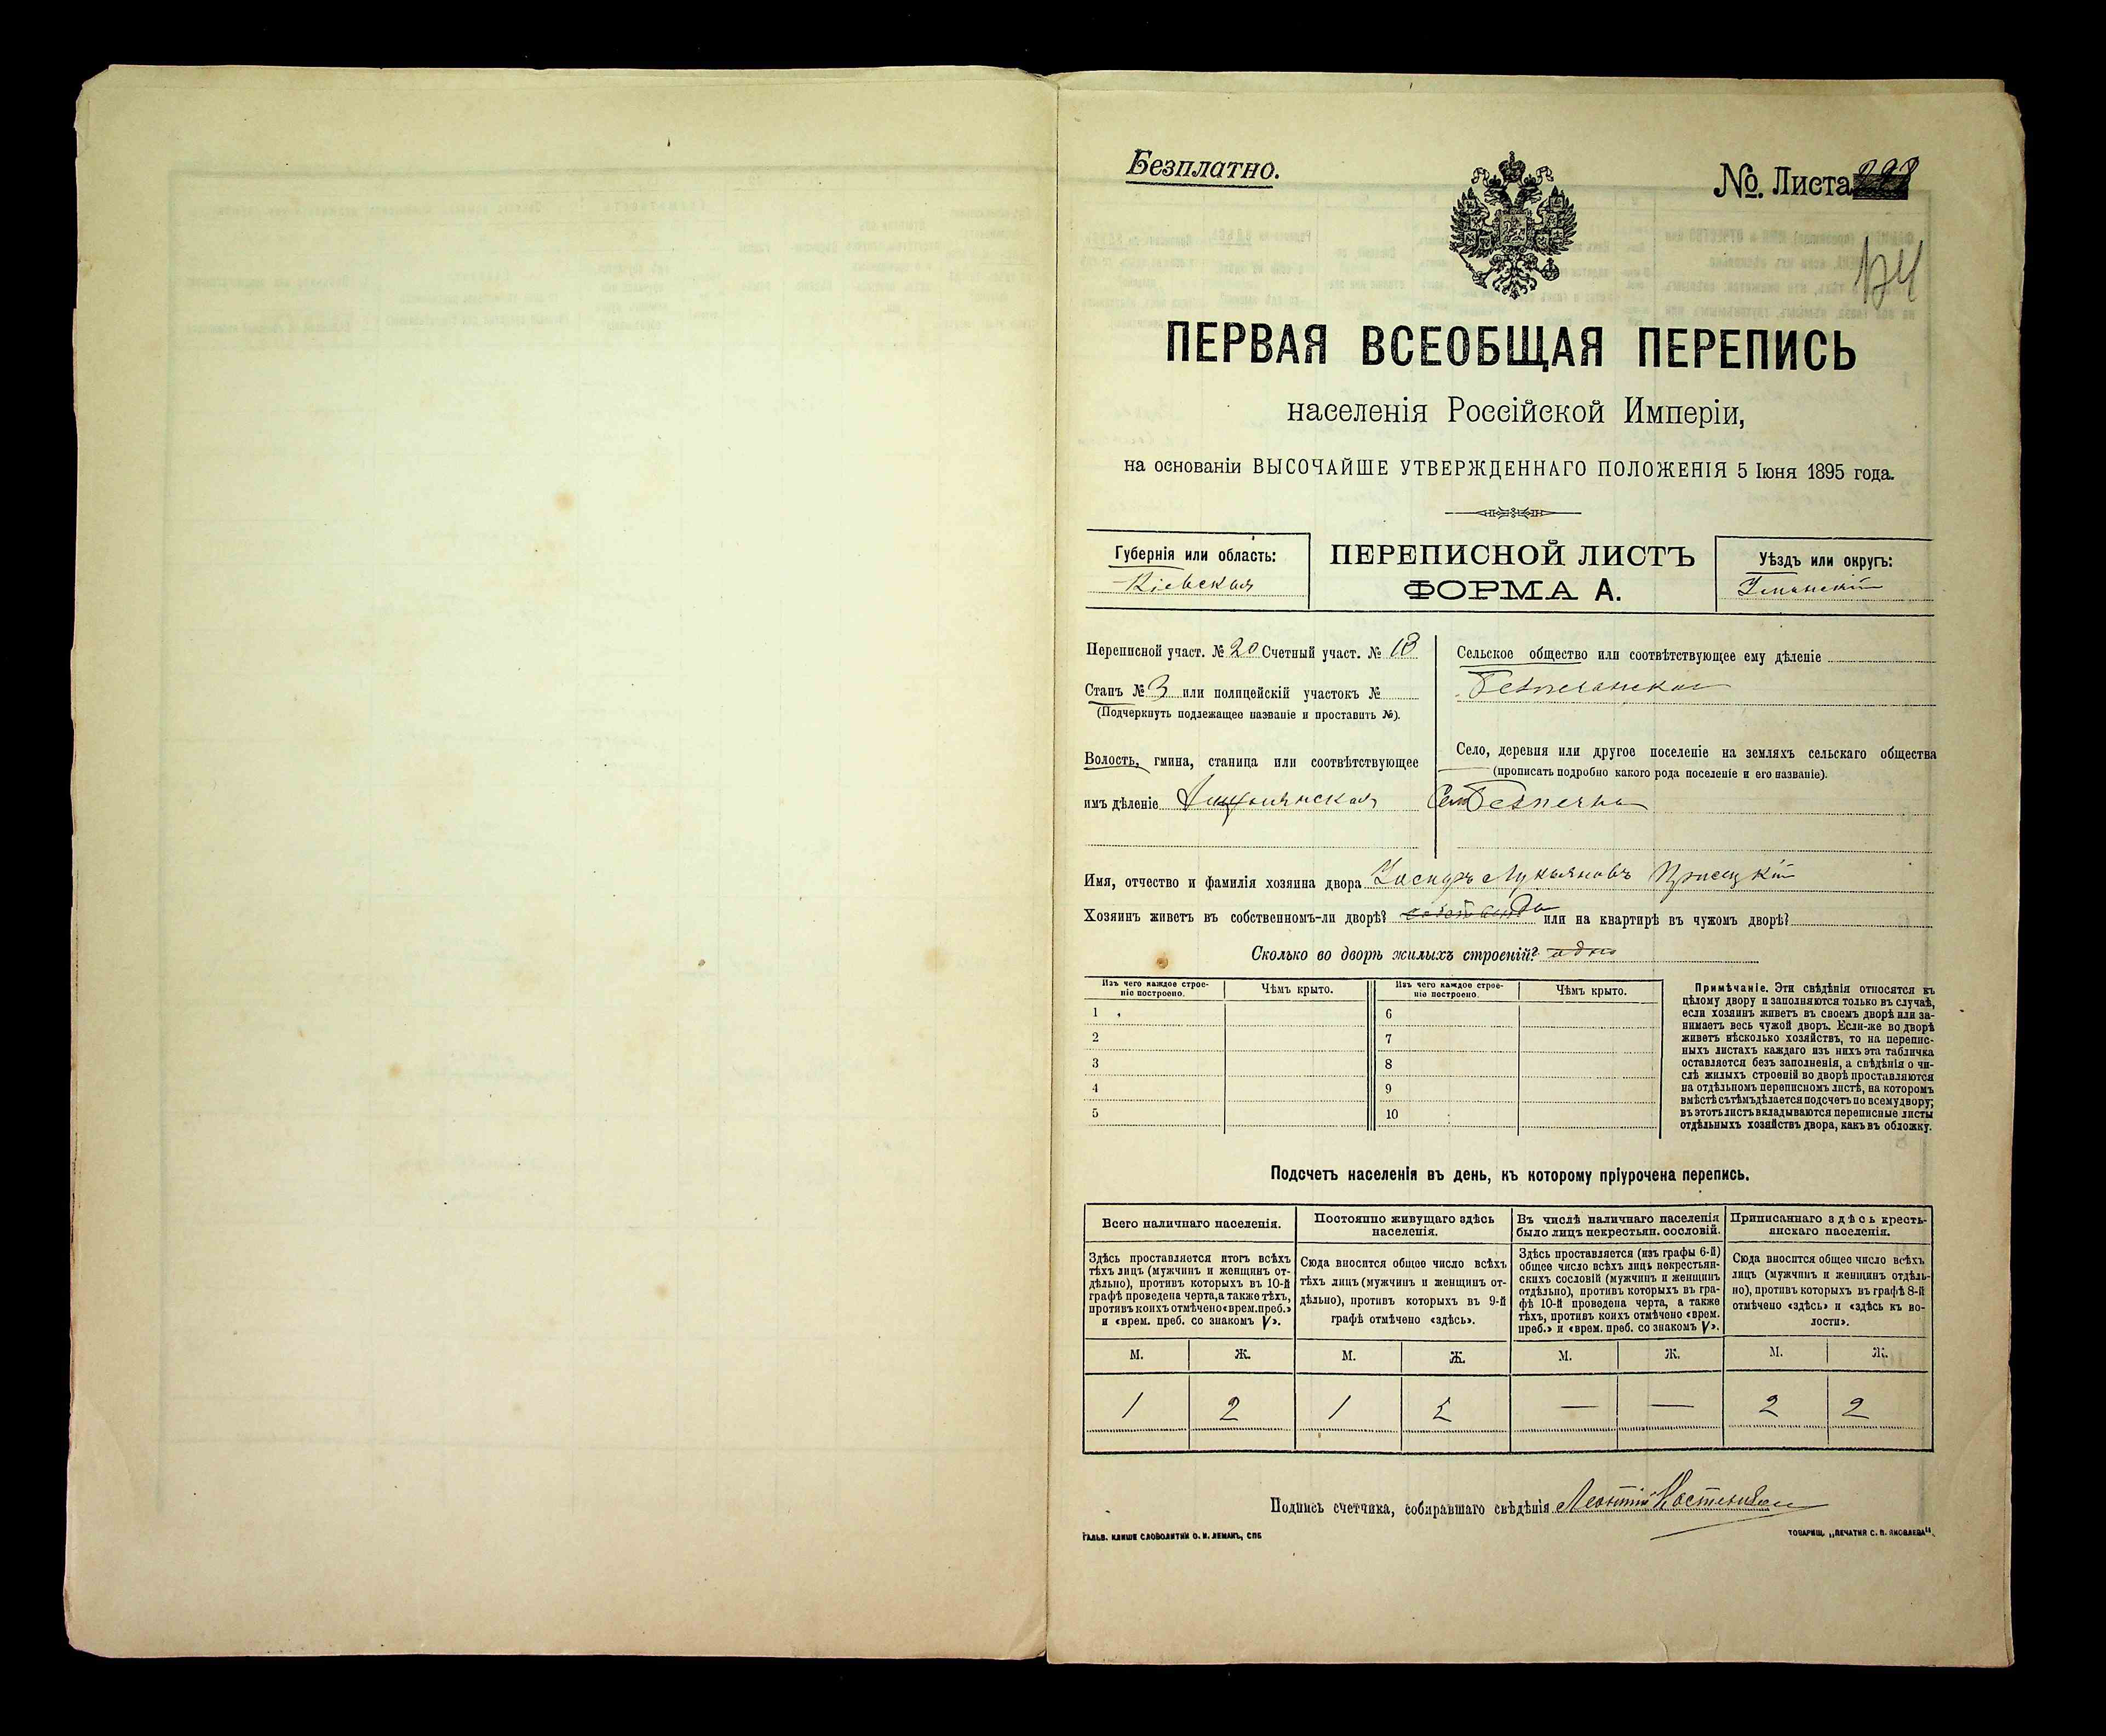 Безплатно.
№ Листа
ПЕРВАЯ ВСЕОБЩАЯ ПЕРЕПИСЬ
населенія Россійской Имперіи,
на основаніи ВЫСОЧАЙШЕ УТВЕРЖДЕННАГО ПОЛОЖЕНІЯ 5 Іюня 1895 года.
Губернія или область:
Кіевская
ПЕРЕПИСНОЙ ЛИСТЪ
ФОРМА А.
Уѣздъ или округъ:
Уманскій
Переписной участ. № 20 Счетный участ. № 13
Станъ № 3 или полицейскій участокъ №
(Подчеркнуть подлежащее названіе и проставить №).
Волость, гмина, станица или соотвѣтствующее
имъ дѣленіе
Сельское общество или соотвѣтствующее ему дѣленіе
Село, деревня или другое поселеніе на земляхъ сельскаго общества
(прописать подробно какого рода поселеніе и его названіе).
Село Безпечна
Имя, отчество и фамилія хозяина двора Іосифъ Лукьяновъ
Хозяинъ живетъ въ собственномъ-ли дворѣ? или на квартирѣ въ чужомъ дворѣ?
Сколько во дворѣ жилыхъ строеній? одно
Изъ чего каждое строе-
ніе построено.
Чѣмъ крыто.
Изъ чего каждое строе-
ніе построено.
Чѣмъ крыто.
1 6
2 7
3 8
4 9
5 10
Примѣчаніе. Эти свѣдѣнія относятся къ
цѣлому двору и заполняются только въ случаѣ,
если хозяинъ живетъ въ своемъ дворѣ или за-
нимаетъ весь чужой дворъ. Если-же во дворѣ
живетъ нѣсколько хозяйствъ, то на перепис-
ныхъ листахъ каждаго изъ нихъ эта табличка
оставляется безъ заполненія, а свѣдѣнія о чи-
слѣ жилыхъ строеній во дворѣ проставляются
на отдѣльномъ переписномъ листѣ, на которомъ
вмѣстѣ съ тѣмъ дѣлается подсчетъ по всему двору;
въ этотъ листъ вкладываются переписные листы
отдѣльныхъ хозяйствъ двора, какъ въ обложку.
Подсчетъ населенія въ день, къ которому пріурочена перепись.
Всего наличнаго населенія.
Здѣсь проставляется итогъ всѣхъ
тѣхъ лицъ (мужчинъ и женщинъ от-
дѣльно), противъ которыхъ въ 10-й
графѣ проведена черта, а также тѣхъ,
противъ коихъ отмѣчено «врем. преб.»
и «врем. преб. со знакомъ V».
Постоянно живущаго здѣсь
населенія.
Сюда вносится общее число всѣхъ
тѣхъ лицъ (мужчинъ и женщинъ от-
дѣльно), противъ которыхъ въ 9-й
графѣ отмѣчено «здѣсь».
Въ числѣ наличнаго населенія
было лицъ некрестьян. сословій.
Здѣсь проставляется (изъ графы 6-й)
общее число всѣхъ лицъ некрестьян-
скихъ сословій (мужчинъ и женщинъ
отдѣльно), противъ которыхъ въ гра-
фѣ 10-й проведена черта, а также
тѣхъ, противъ коихъ отмѣчено «врем.
преб.» и «врем. преб. со знакомъ V».
Приписаннаго здѣсь кресть-
янскаго населенія.
Сюда вносится общее число всѣхъ
лицъ (мужчинъ и женщинъ отдѣль-
но), противъ которыхъ въ графѣ 8-й
отмѣчено «здѣсь» и «здѣсь къ во-
лости».
М. Ж. М. Ж. М. Ж. М. Ж.
1 2 1 2 — — 2 2
Подпись счетчика, собиравшаго свѣдѣнія Леонтій
ГАЛЬВ. КЛИШЕ СЛОВОЛИТНИ О. И. ЛЕМАНЪ, СПБ
ТОВАРИЩ. „ПЕЧАТНЯ С. П. ЯКОВЛЕВА“.